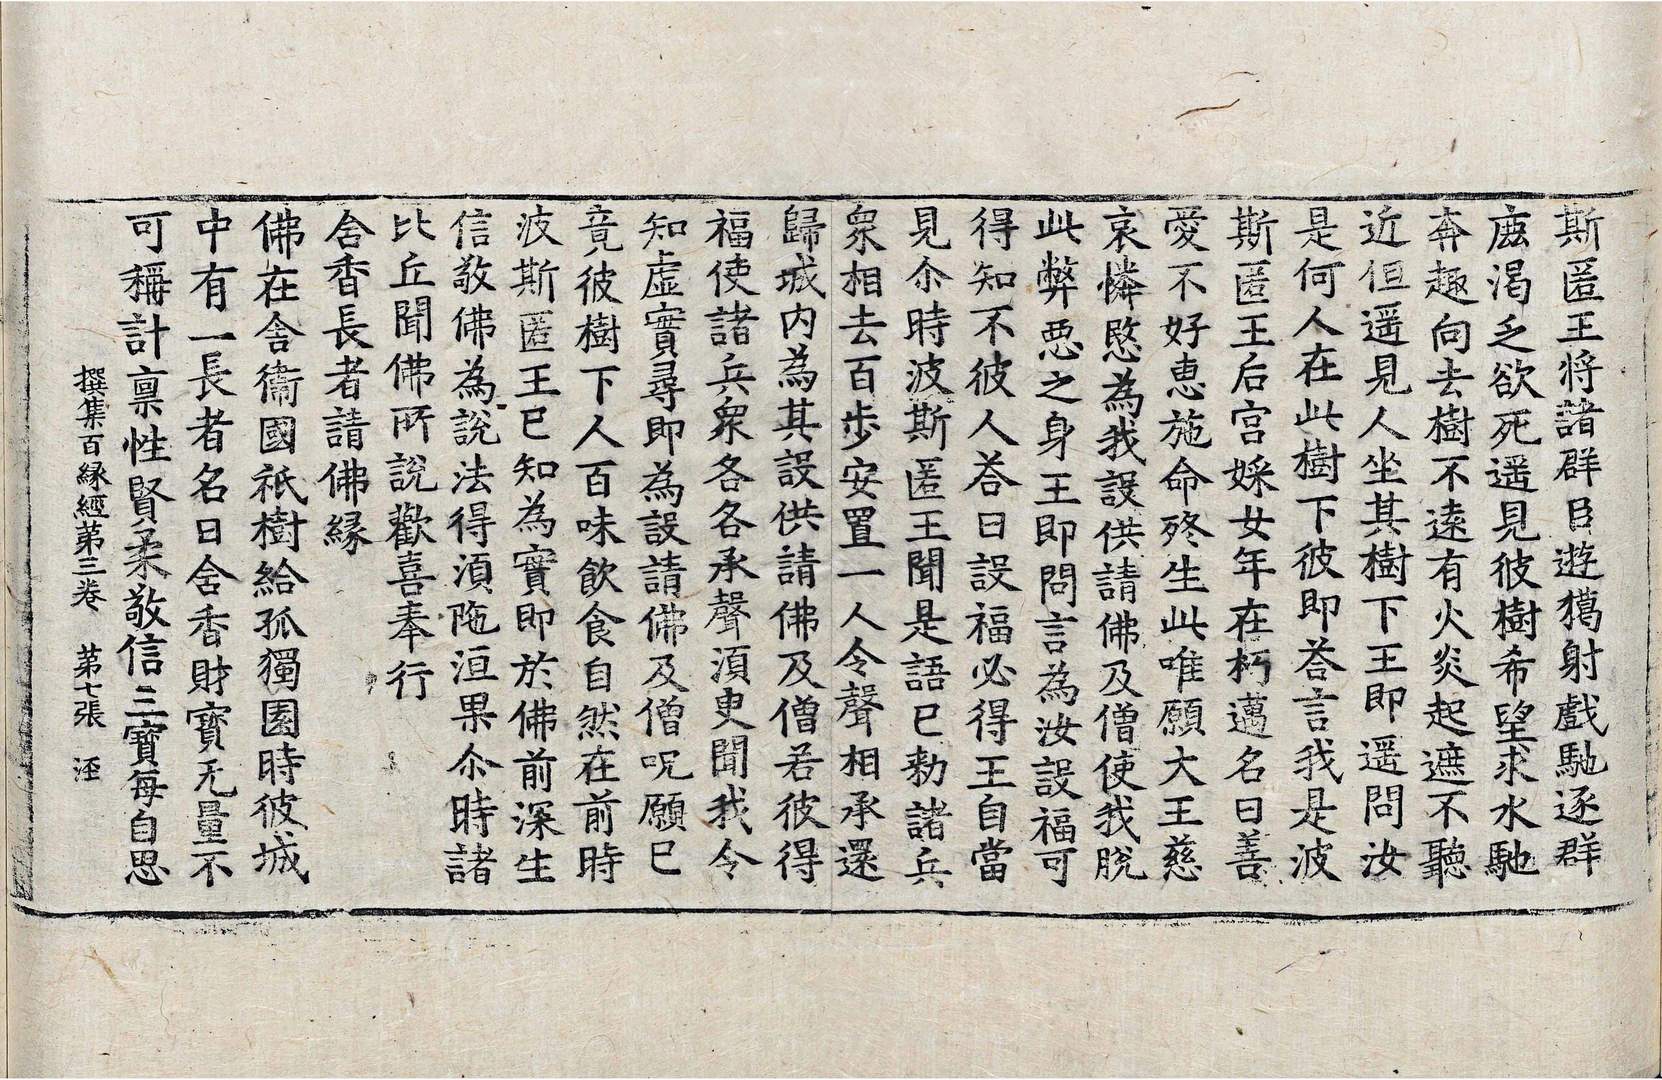 斯匿王將諸群臣遊獦射戲馳逐群
鹿渴乏欲死遥見彼樹希望求水馳
奔趣向去樹不遠有火炎起遮不聽
近但遥見人坐其樹下王即遥問汝
是何人在此樹下彼即荅言我是波
斯匿王后宫婇女年在朽邁名曰善
愛不好惠施命終生此唯願大王慈
哀憐愍為我設供請佛及僧使我脫
此弊惡之身王即問言為汝設福可
得知不彼人荅曰設福必得王自當
見尒時波斯匿王聞是語已勑諸兵
衆相去百步安置一人令聲相承還
歸城内為其設供請佛及僧若彼得
福使諸兵衆各各承聲湏更聞我令
知虛實尋即為設請佛及僧呪願已
竟彼樹下人百味飲食自然在前時
波斯匿王已知為實即於佛前深生
信敬佛為說法得湏陁洹果尒時諸
比丘聞佛所說歡喜奉行
含香長者請佛縁
佛在舎衛國祇樹給孤獨園時彼城
中有一長者名曰含香財寶无量不
可稱計禀性賢柔敬信三寶每自思
撰集百縁經第三卷　第七張　淫